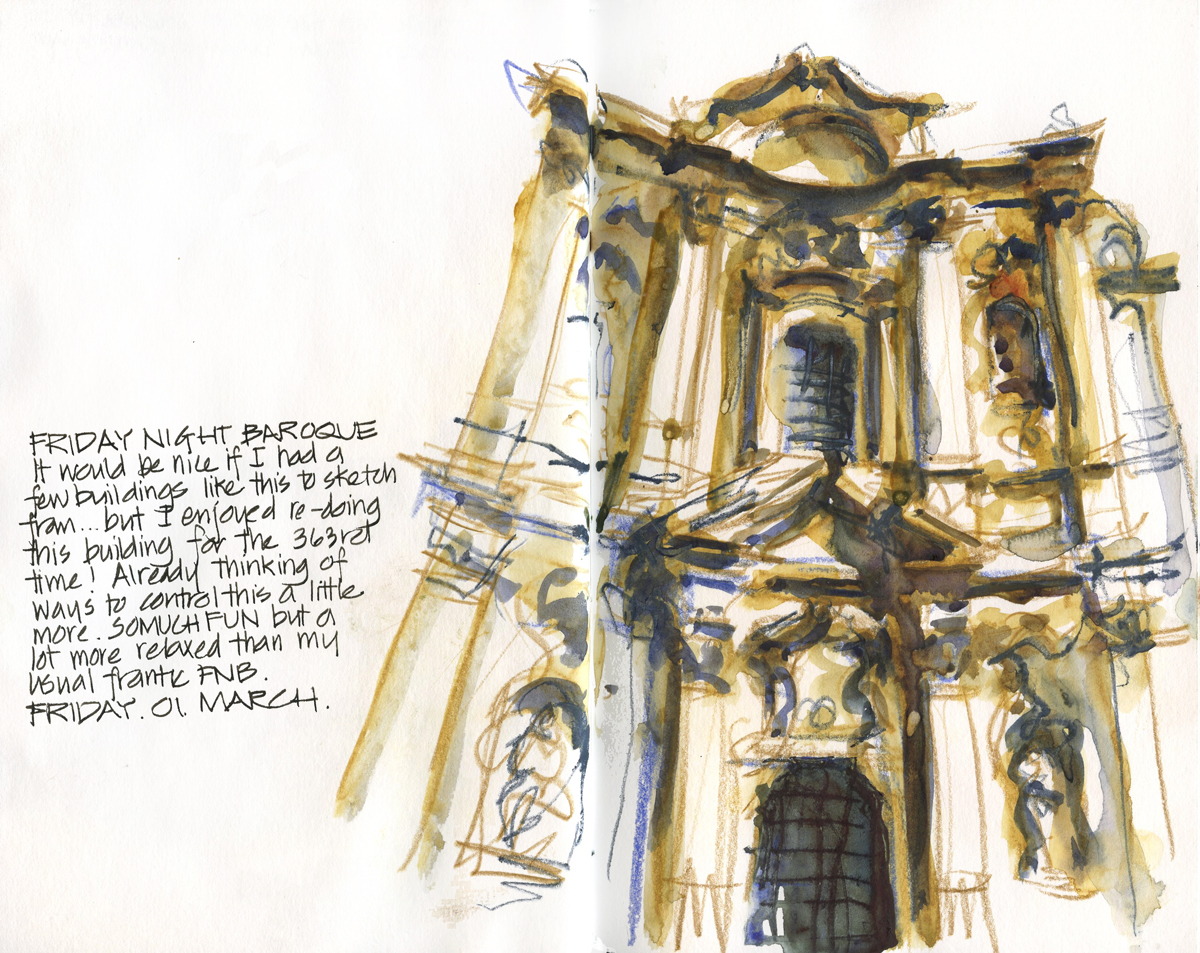 FRIDAY NIGHT BAROQUE
It would be nice if I had a
few buildings like this to sketch
from...but I enjoyed re-doing
this building for the 363rd
time! Already thinking of
ways to control this a little
more. SO MUCH FUN but a
lot more relaxed than my
usual frantic FNB.
FRIDAY. 01. MARCH.